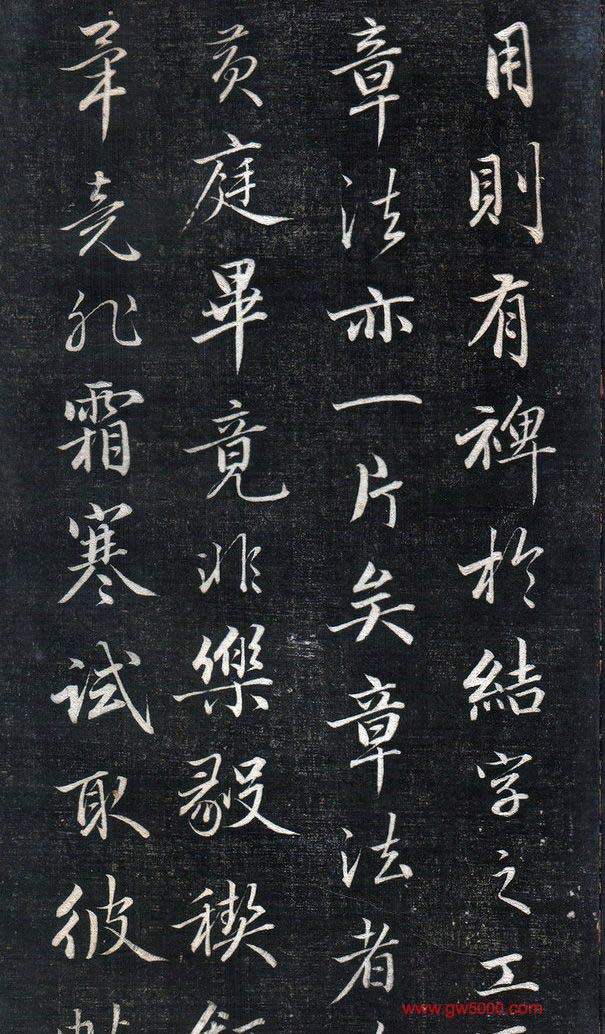 用則有裨於結字之工
章法亦一片矣章法者
黃庭畢竟非樂毅稧
畢竟非霜寒試取彼
www.gw5000.com